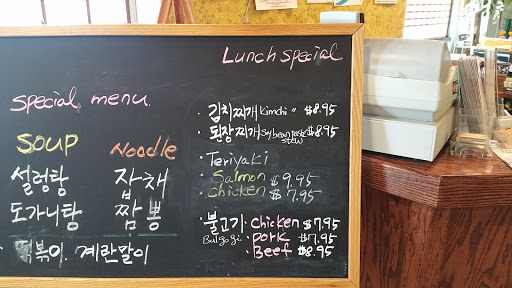 Lunch special
special menu.
SOUP
Noodle
설렁탕
잡채
도가니탕
짬뽕
· 떡볶이. 계란말이
· 김치찌개 Kimchi " $8.95
· 된장찌개 Soybean paste stew $8.95
· Teriyaki
· Salmon $9.95
· chicken $7.95
· 불고기 · chicken $7.95
Bulgogi · pork $7.95
· Beef $8.95